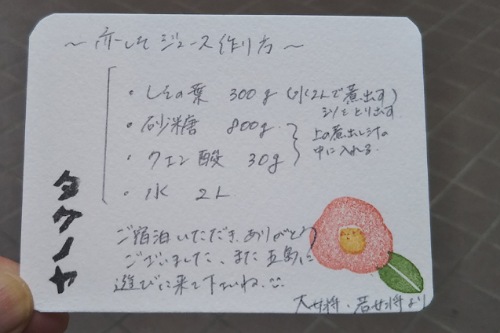 ～赤しそジュース作り方～
・しその葉 300g (水2Lで煮出す)
シソをとり出す
・砂糖 800g
・クエン酸 30g
上の煮出し汁の
中に入れる。
・水 2L
ご宿泊いただき、ありがとう
ございました。また五島に
遊びに来て下さいね。
大女将・若女将より